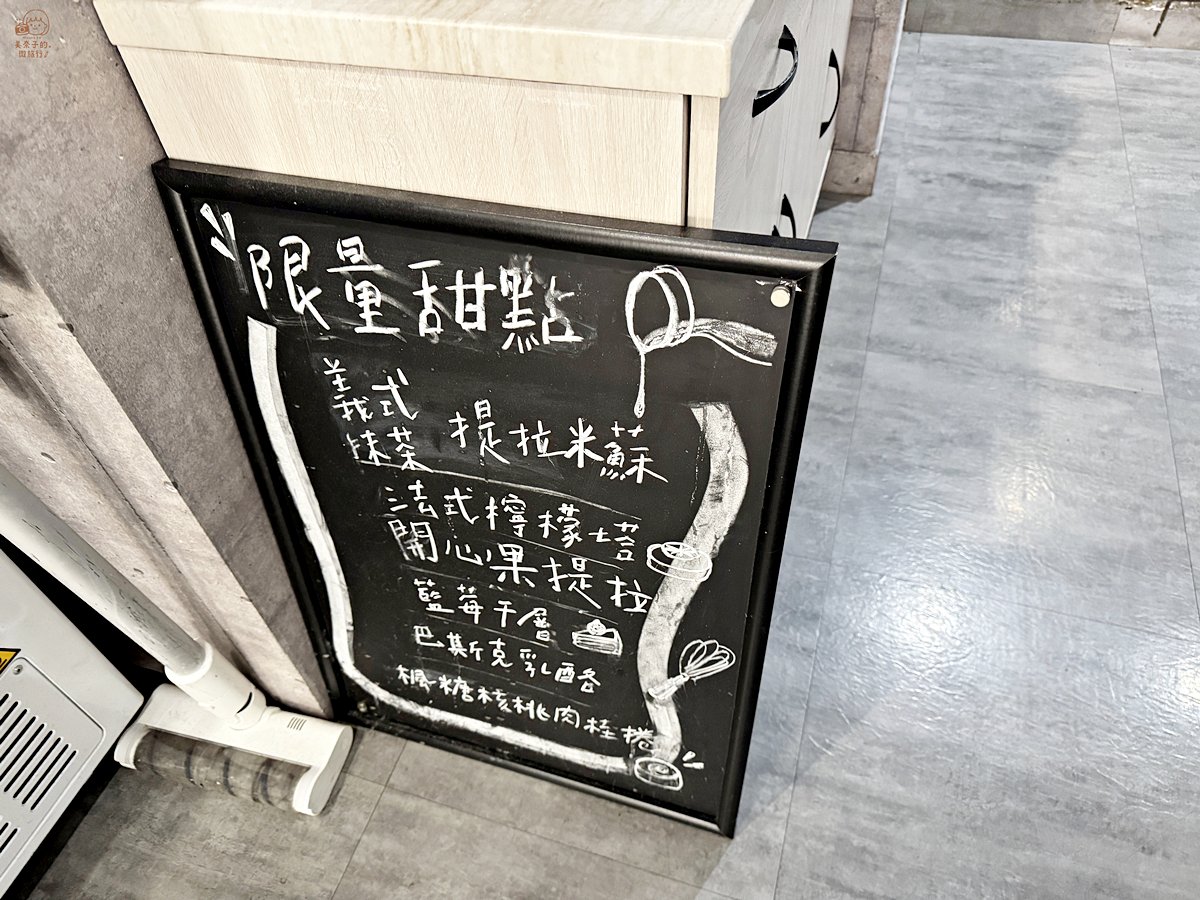 美奈子的。
微旅行♪
限量甜點
義式
抹茶 提拉米蘇
法式檸檬塔
開心果提拉
藍莓千層
巴斯克乳酪
楓糖核桃肉桂捲